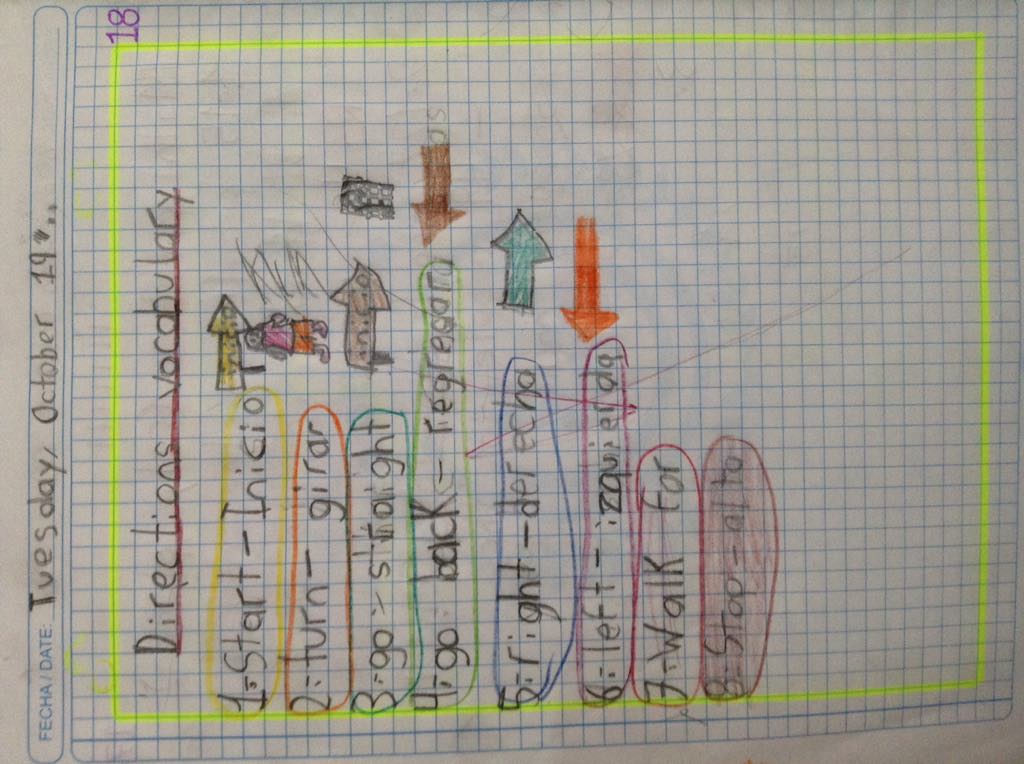 18
FECHA/DATE: Tuesday, October 19th..
Directions vocabulary
1=Start - Inicio
inicio
2=turn - girar
3=go > straight
inicio
4=go back - regresar
5=right - derecha
6=left - izquierda
7=Walk For
8=Stop - alto